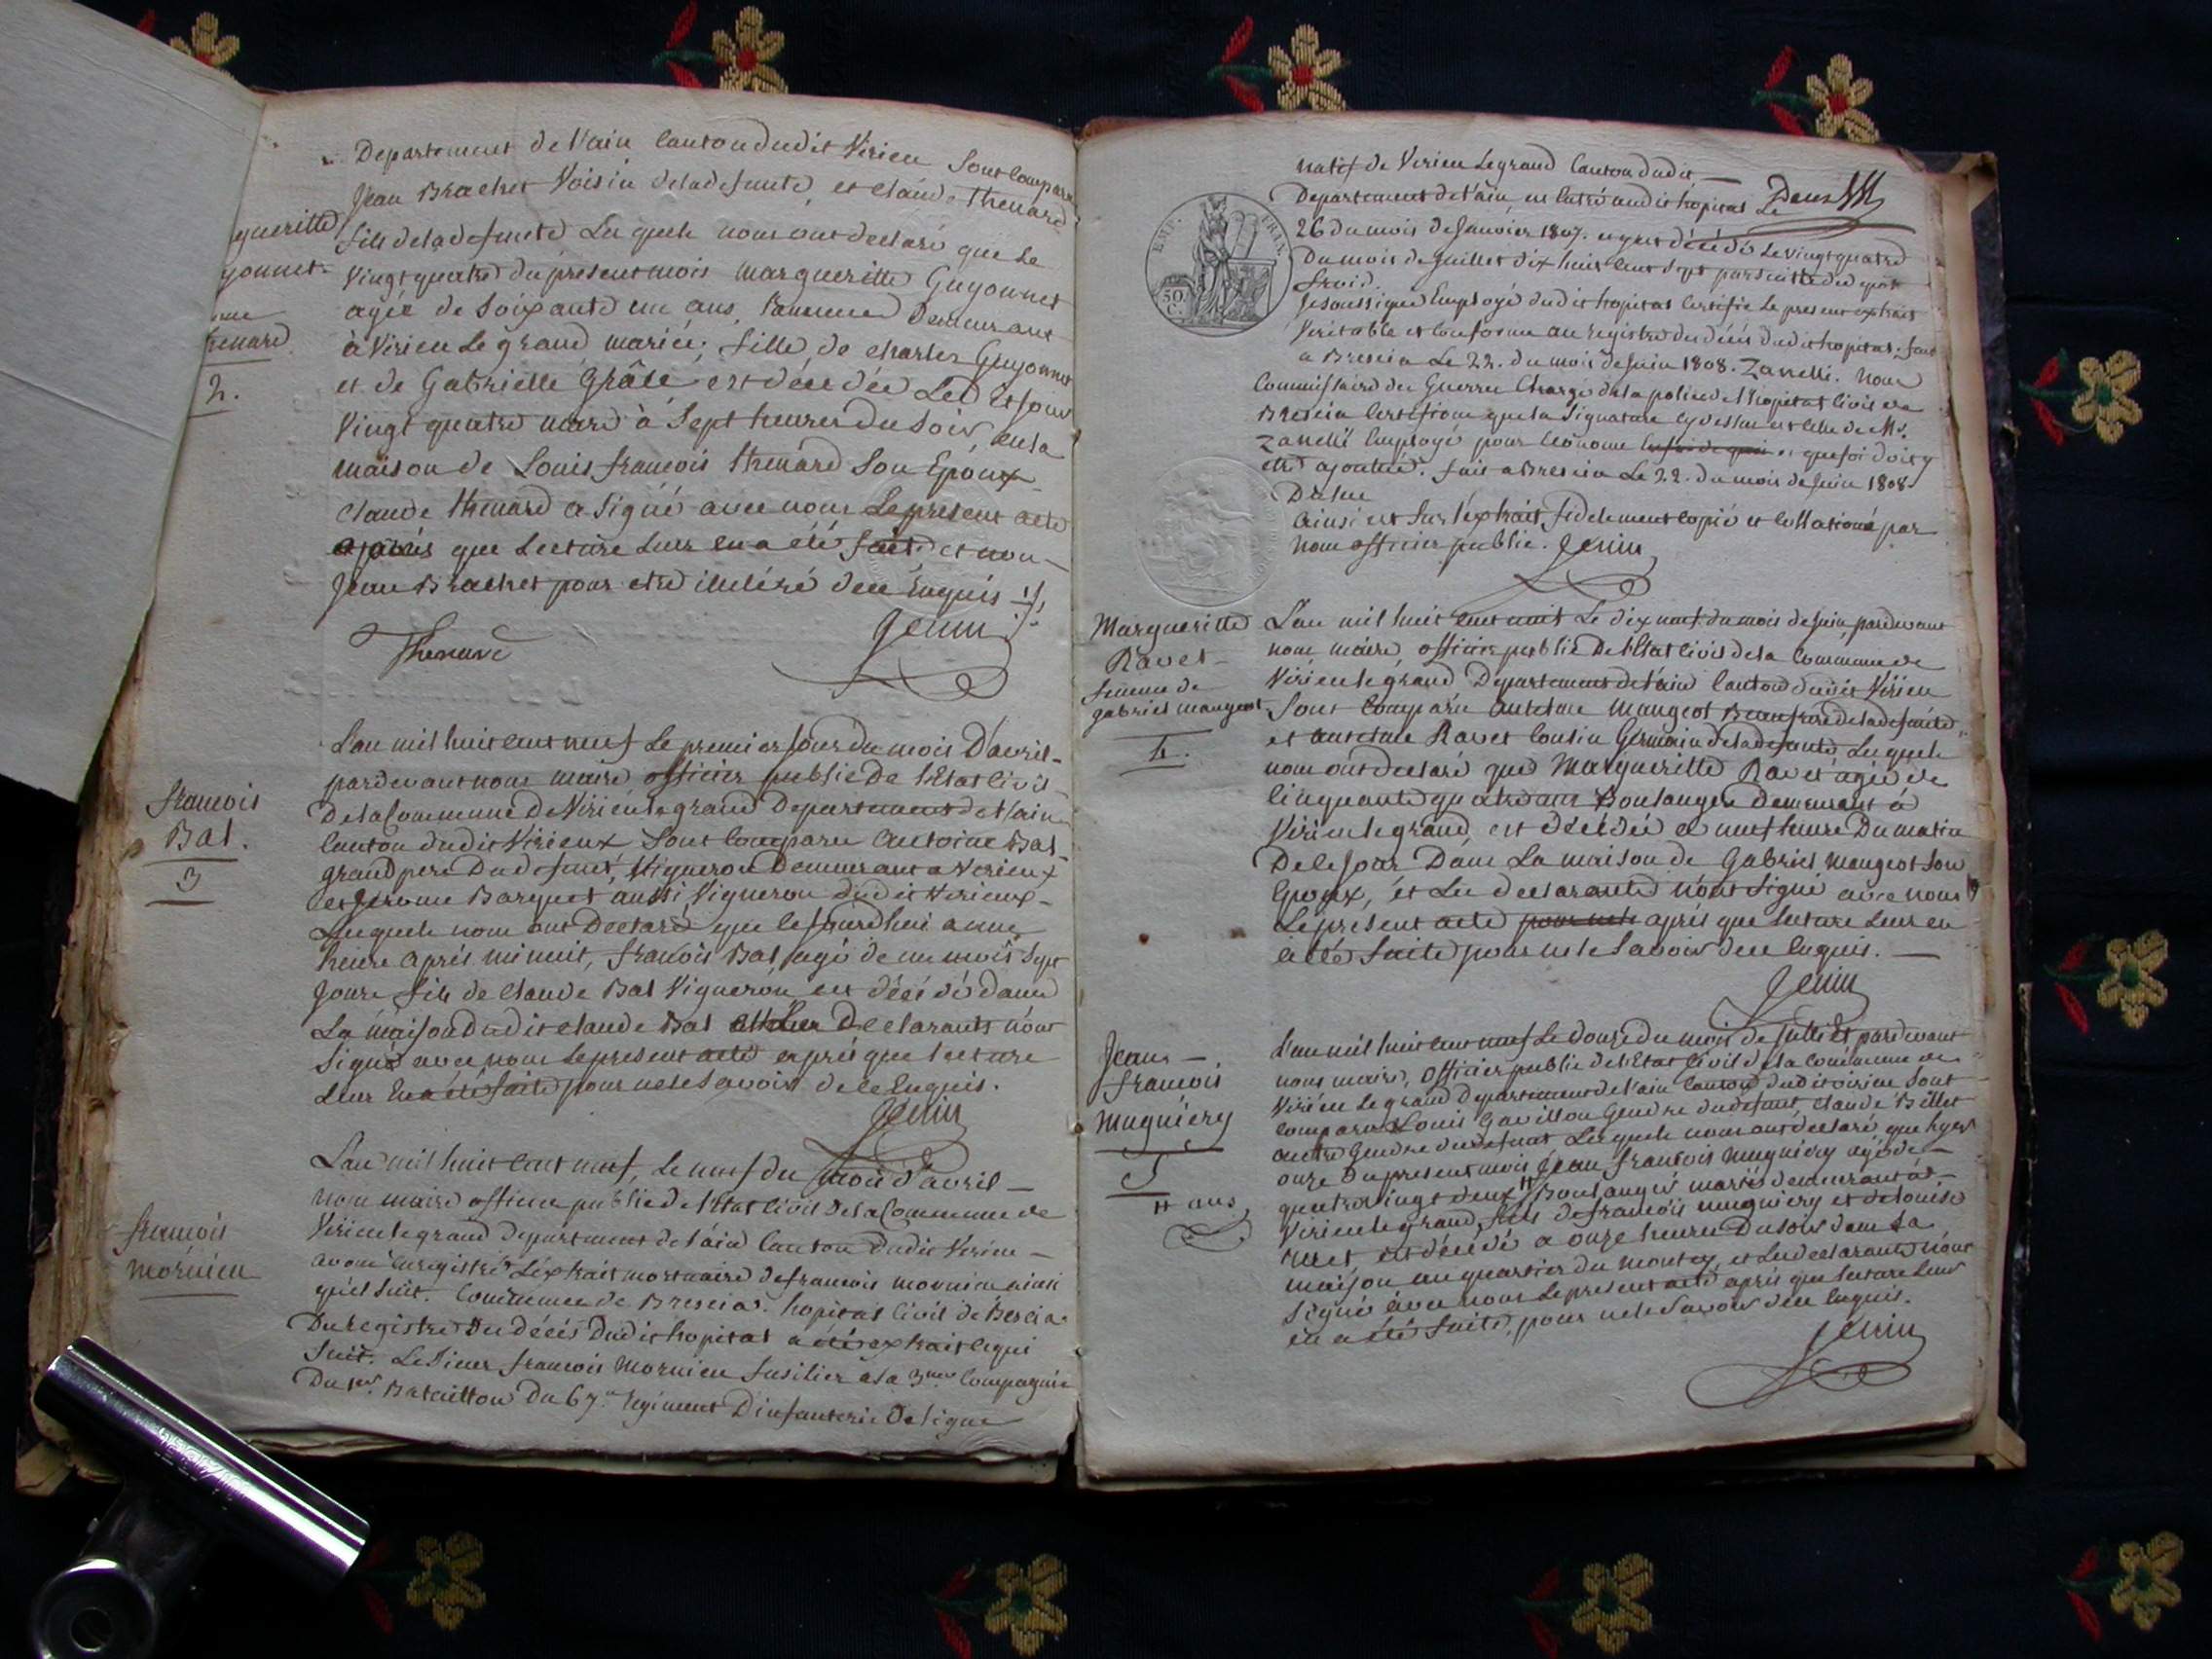 Departement de l'ain Canton dudit Virieu Sont Comparu
Jean Brachet Voisin de la defunte, et Claude thenard
fils de la defunte Lesquels nous ont declaré que le
Vingt quatre du present mois margueritte Guyonnet
agée de Soixante un ans, Demeurant
à Virieu Le grand mariée, fille de charles Guyonnet
et de Gabrielle Grâle est décédée Ledit jour
Vingt quatre mars à Sept heures du Soir, en la
maison de Louis françois thenard Son Epoux
Claude thenard a Signé avec nous Le present acte
après que Lecture Leur en a été faite et non
Jean Brachet pour etre illitéré de ce Enquis
Thenard
Genin
gueritte
yonnet
me
henard
2.
L'an mil huit cent neuf Le premier jour du mois D'avril
pardevant nous maire officier public De l'Etat Civil
De la Commune De Virieu le grand Departement de l'ain
Canton dudit Virieux Sont Comparu antoine Bal
grand pere Du defunt, Vigneron Demeurant a Virieux
et Jerome Barquet aussi Vigneron dudit Virieux
Lesquels nous ont Declaré que Cejourd'hui a une
heure après minuit, françois Bal, agé de un mois Sept
Jours fils de Claude Bal Vigneron est décédé dans
La maison dudit Claude Bal et Les Declarants n'ont
Signé avec nous Le present acte après que lecture
Leur En a été faite pour ne le Savoir de ce Enquis.
Genin
francois
Bal.
3
L'an mil huit cent neuf, Le neuf du mois d'avril
nous maire officier public de l'Etat Civil De la Commune de
Virieu le grand departement de l'ain Canton Dudit Virieu
avons Enregistré L'extrait mortuaire de francois mornieu ainsi
qu'il Suit. Commune de Brescia. hopital Civil de Brescia
Du registre Des décès Dudit hopital a été extrait ce qui
Suit. Le Sieur francois Mornieu fusilier à la 3me Compagnie
Du 1er. Bataillon Du 67e regiment D'infanterie De ligne
francois
mornieu
natif de Virieu Le grand Canton dudit
Departement de l'ain, est Entré audit hopital Le
26 du mois de Janvier 1807. et y est décédé Le Vingt quatre
Du mois de Juillet dix huit Cent Sept par Suite de
froid.
Je Soussigné Employé dudit hopital Certifie Le present extrait
Veritable et Conforme au registre des décés dudit hopital. fait
a Brescia Le 22. du mois de Juin 1808. Zanelli. Nous
Commissaire des Guerres Chargé de la police de l'hopital Civil de
Brescia Certifions que la Signature cy dessus est Celle de Mr.
Zanelli Employé pour Econome et que foi doit y
etre ajoutée. fait a Brescia Le 22. du mois de Juin 1808.
Ainsi est Sur l'extrait fidelement Copié et Collationé par
nous officier public. Genin
EMP. FRANÇ.
50 C.
Deux
L'an mil huit cent neuf Le dix neuf du mois de Juin, pardevant
nous maire officier public De l'Etat Civil de la Commune de
Virieu le grand Departement de l'ain Canton dudit Virieu
Sont Comparu antelme Mangeot Beaufrere de la defunte
et antelme Ravet Cousin Germain de la defunte Lesquels
nous ont declaré que Margueritte Ravet agée de
Cinquante quatre ans Boulangere Demeurant à
Virieu le grand est décédée a neuf heure Du matin
De Ce Jour Dans La maison de Gabriel Mangeot Son
Epoux, et Les declarants n'ont Signé avec nous
Le present acte pour ne le après que lecture Leur en
a été faite pour ne le Savoir de ce Enquis.
Genin
Margueritte
Ravet
femme de
gabriel mangeot
4.
L'an mil huit cent neuf Le douze du mois de Juillet pardevant
nous maire, officier public de l'Etat Civil de la Commune de
Virieu Le grand Departement de l'ain Canton dudit virieu Sont
Comparu Louis Gavillon Gendre du defunt, Claude Billet
autre Gendre du defunt Lesquels nous ont declaré que hyer
onze Du present mois Jean francois mugniery agé de
quatre vingt deux Boulanger mariés demeurant à
Virieu le grand, fils de francois mugniery et de louise
est décédé a onze heures Du Soir dans Sa
maison au quartier du Montey, et Les declarants n'ont
Signé avec nous Le present acte après que lecture Leur
en a été faite, pour ne le Savoir de ce Enquis.
Genin
Jean
francois
Mugniery
5
ans